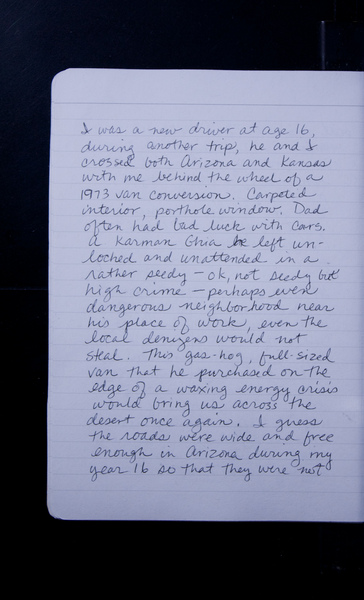 I was a new driver at age 16,
during another trip, he and I
crossed both Arizona and Kansas
with me behind the wheel of a
1973 van conversion. Carpeted
interior, porthole window. Dad
often had bad luck with cars.
A Karman Ghia he left un-
locked and unattended in a
rather seedy – ok, not seedy but
high crime – perhaps even
dangerous neighborhood near
his place of work, even the
local denizens would not
steal. This gas-hog, full-sized
van that he purchased on the
edge of a waxing energy crisis
would bring us across the
desert once again. I guess
the roads were wide and free
enough in Arizona during my
year 16 so that they were not